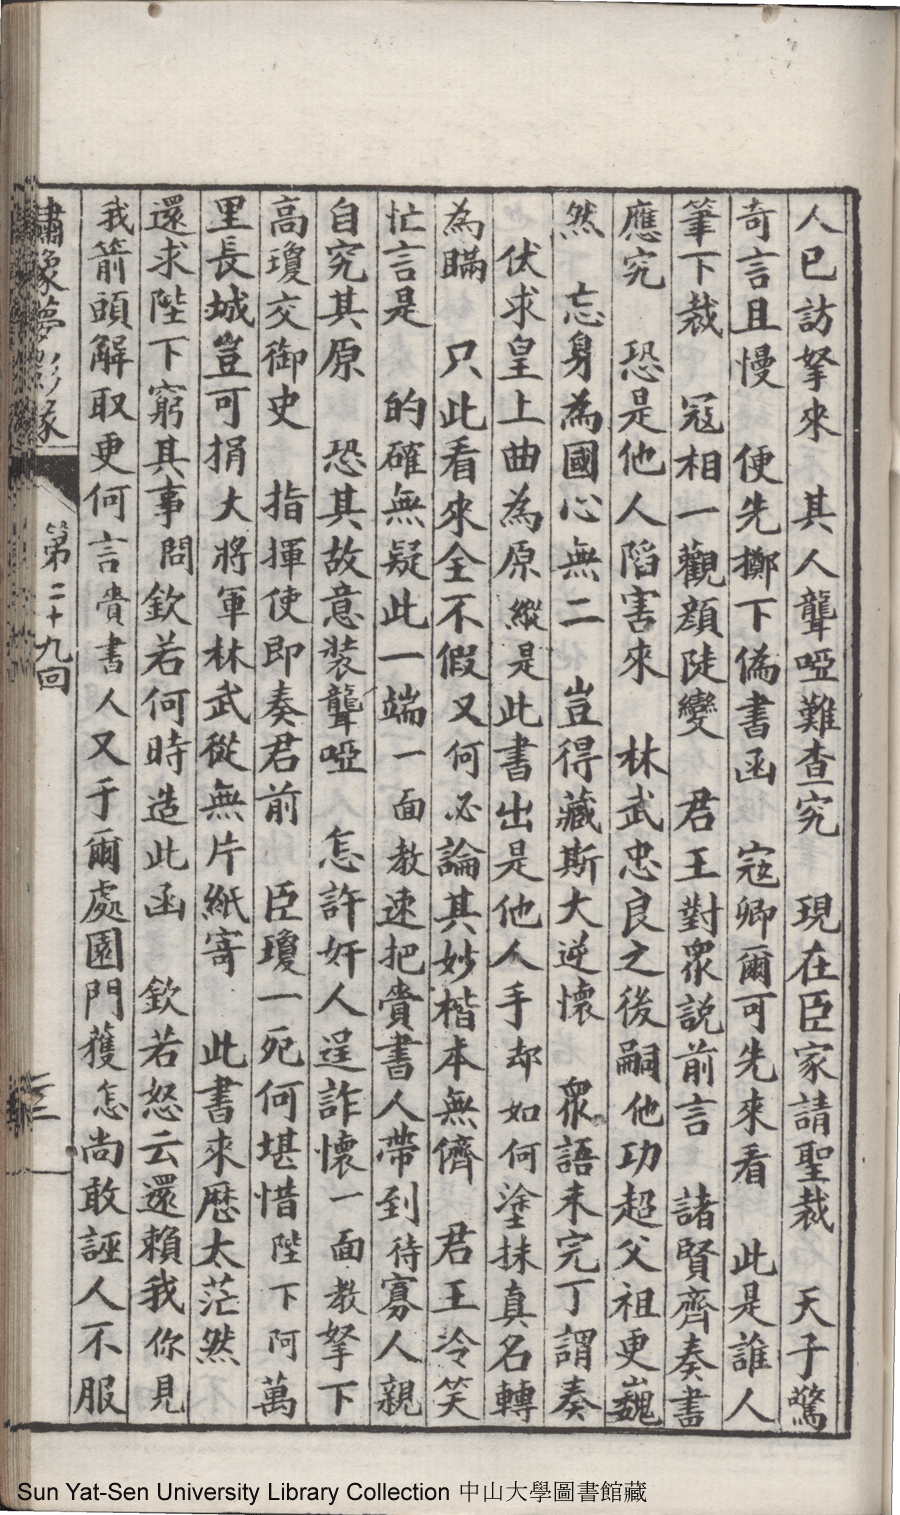 人已訪拏來　其人聾啞難查究　現在臣家請聖裁　天子驚
奇言且慢　便先擲下偽書函　寇卿爾可先來看　此是誰人
筆下裁　寇相一觀顔陡變　君王對眾説前言　諸賢齊奏書
應究　恐是他人陷害來　林武忠良之後嗣他功超父祖更巍
然　忘身為國心無二　豈得藏斯大逆懷　眾語未完丁謂奏
伏求皇上曲為原縱是此書出是他人手却如何塗抹真名轉
為瞞　只此看來全不假又何必論其妙楷本無儕　君王冷笑
忙言是　的確無疑此一端一面教速把賫書人帶到待寡人親
自究其原　恐其故意裝聾啞　怎許奸人逞詐懷一面教拏下
高瓊交御史　指揮使即奏君前　臣瓊一死何堪惜陛下阿萬
里長城豈可捐大將軍林武從無片紙寄　此書來歷太茫然
還求陛下窮其事問欽若何時造此函　欽若怒云還賴我你見
我箭頭解取更何言賫書人又于爾處園門獲怎尚敢誣人不服
第二十九回
三
Sun Yat-Sen University Library Collection 中山大學圖書館藏